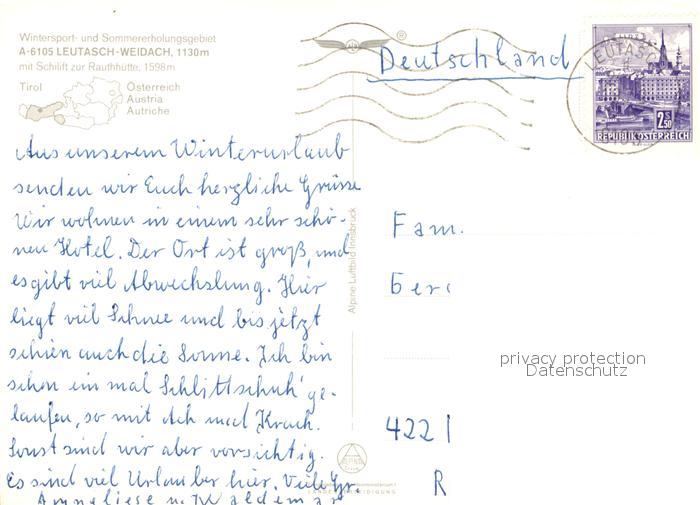 Wintersport- und Sommererholungsgebiet
A-6105 LEUTASCH-WEIDACH, 1130m
mit Schilift zur Rauthhütte, 1598m
Tirol
Österreich
Austria
Autriche
Deutschland
LEUTASCH
2.50
REPUBLIK ÖSTERREICH
Aus unserem Winterurlaub
senden wir Euch herzliche Grüsse
Wir wohnen in einem sehr schö-
nen Hotel. Der Ort ist groß, und
es gibt viel Abwechslung. Hier
liegt viel Schnee und bis jetzt
schien auch die Sonne. Ich bin
schon ein mal Schlittschuh' ge-
laufen, so mit Ach und Krach.
Sonst sind wir aber vorsichtig.
Es sind viel Urlauber hier. Viele Gr.
Anneliese u. Waldemar
Alpine Luftbild Innsbruck
Fam.
4221
R
privacy protection
Datenschutz